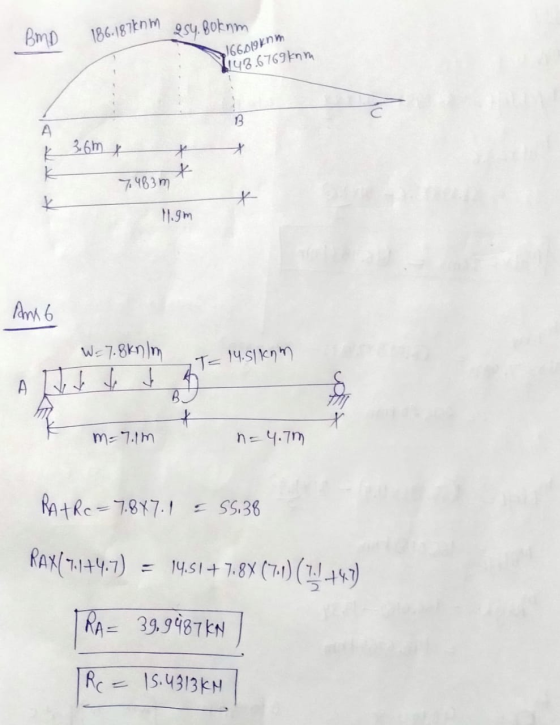 BMD
186.187knm 254.80knm
166.019knm
148.6769knm
A B C
3.6m
7.483m
11.9m
Ans 6
W=7.8kn/m T= 14.51knm
A B C
m=7.1m n= 4.7m
RA+RC = 7.8x7.1 = 55.38
RAX(7.1+4.7) = 14.51+7.8x(7.1)(7.1/2+4.7)
RA= 39.9487KN
RC = 15.4313KN